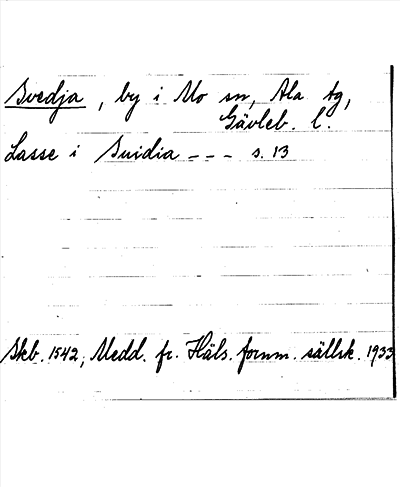 Svedja, by i Mo sn, Ala tg,
Gävleb. l.
Lasse i Suidia --- s. 13
Skb. 1542, Medd. fr. Häls. fornm. sällsk. 1933